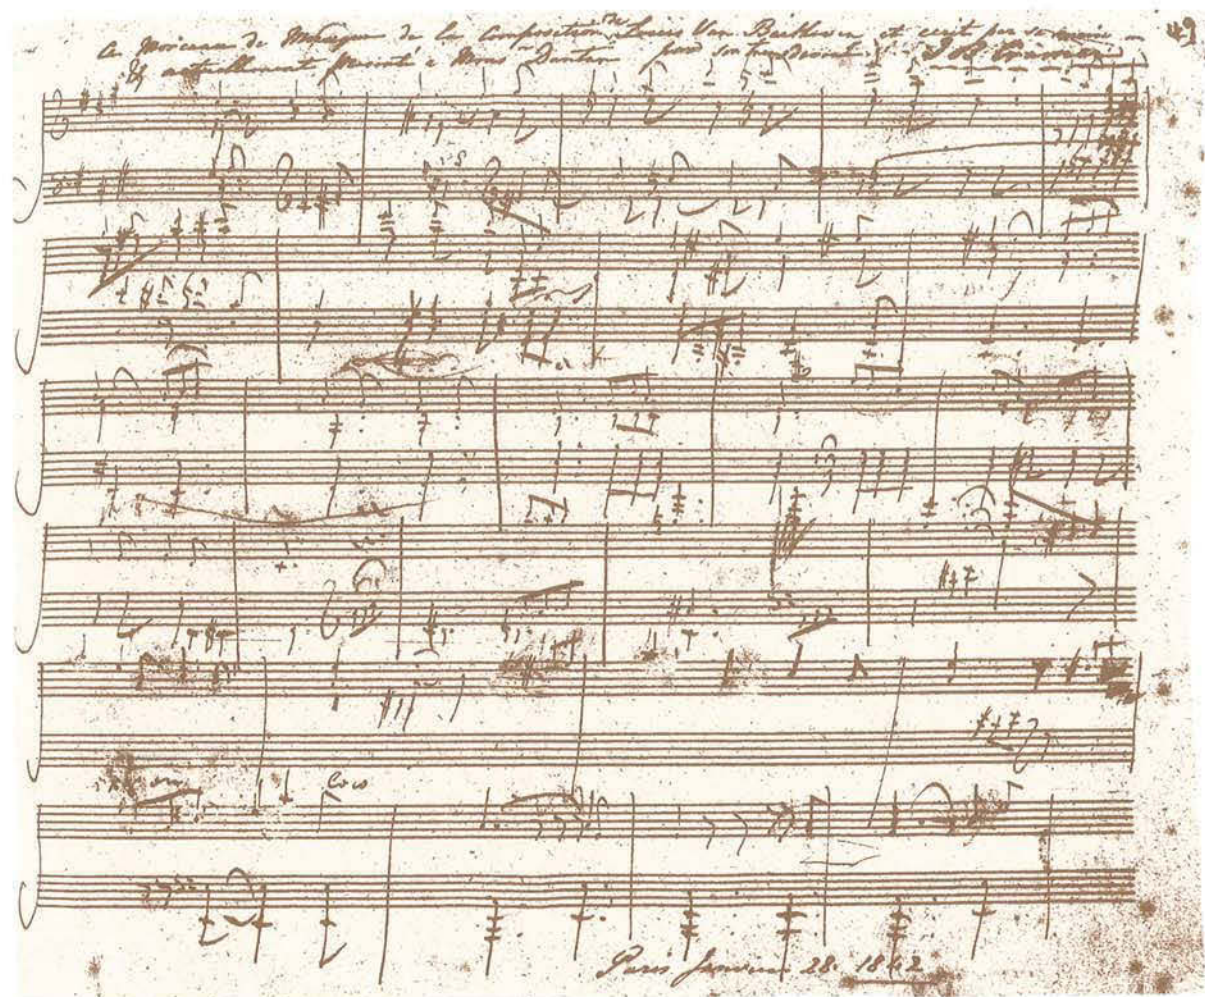 Ce Morceau de Musique de la Composition de Louis Van Beethoven et ecrit par sa main
Et actuellement presenté a Mons Dantan par son tres devoué J B Cramer
49
loco
Paris Janvier 28 1842